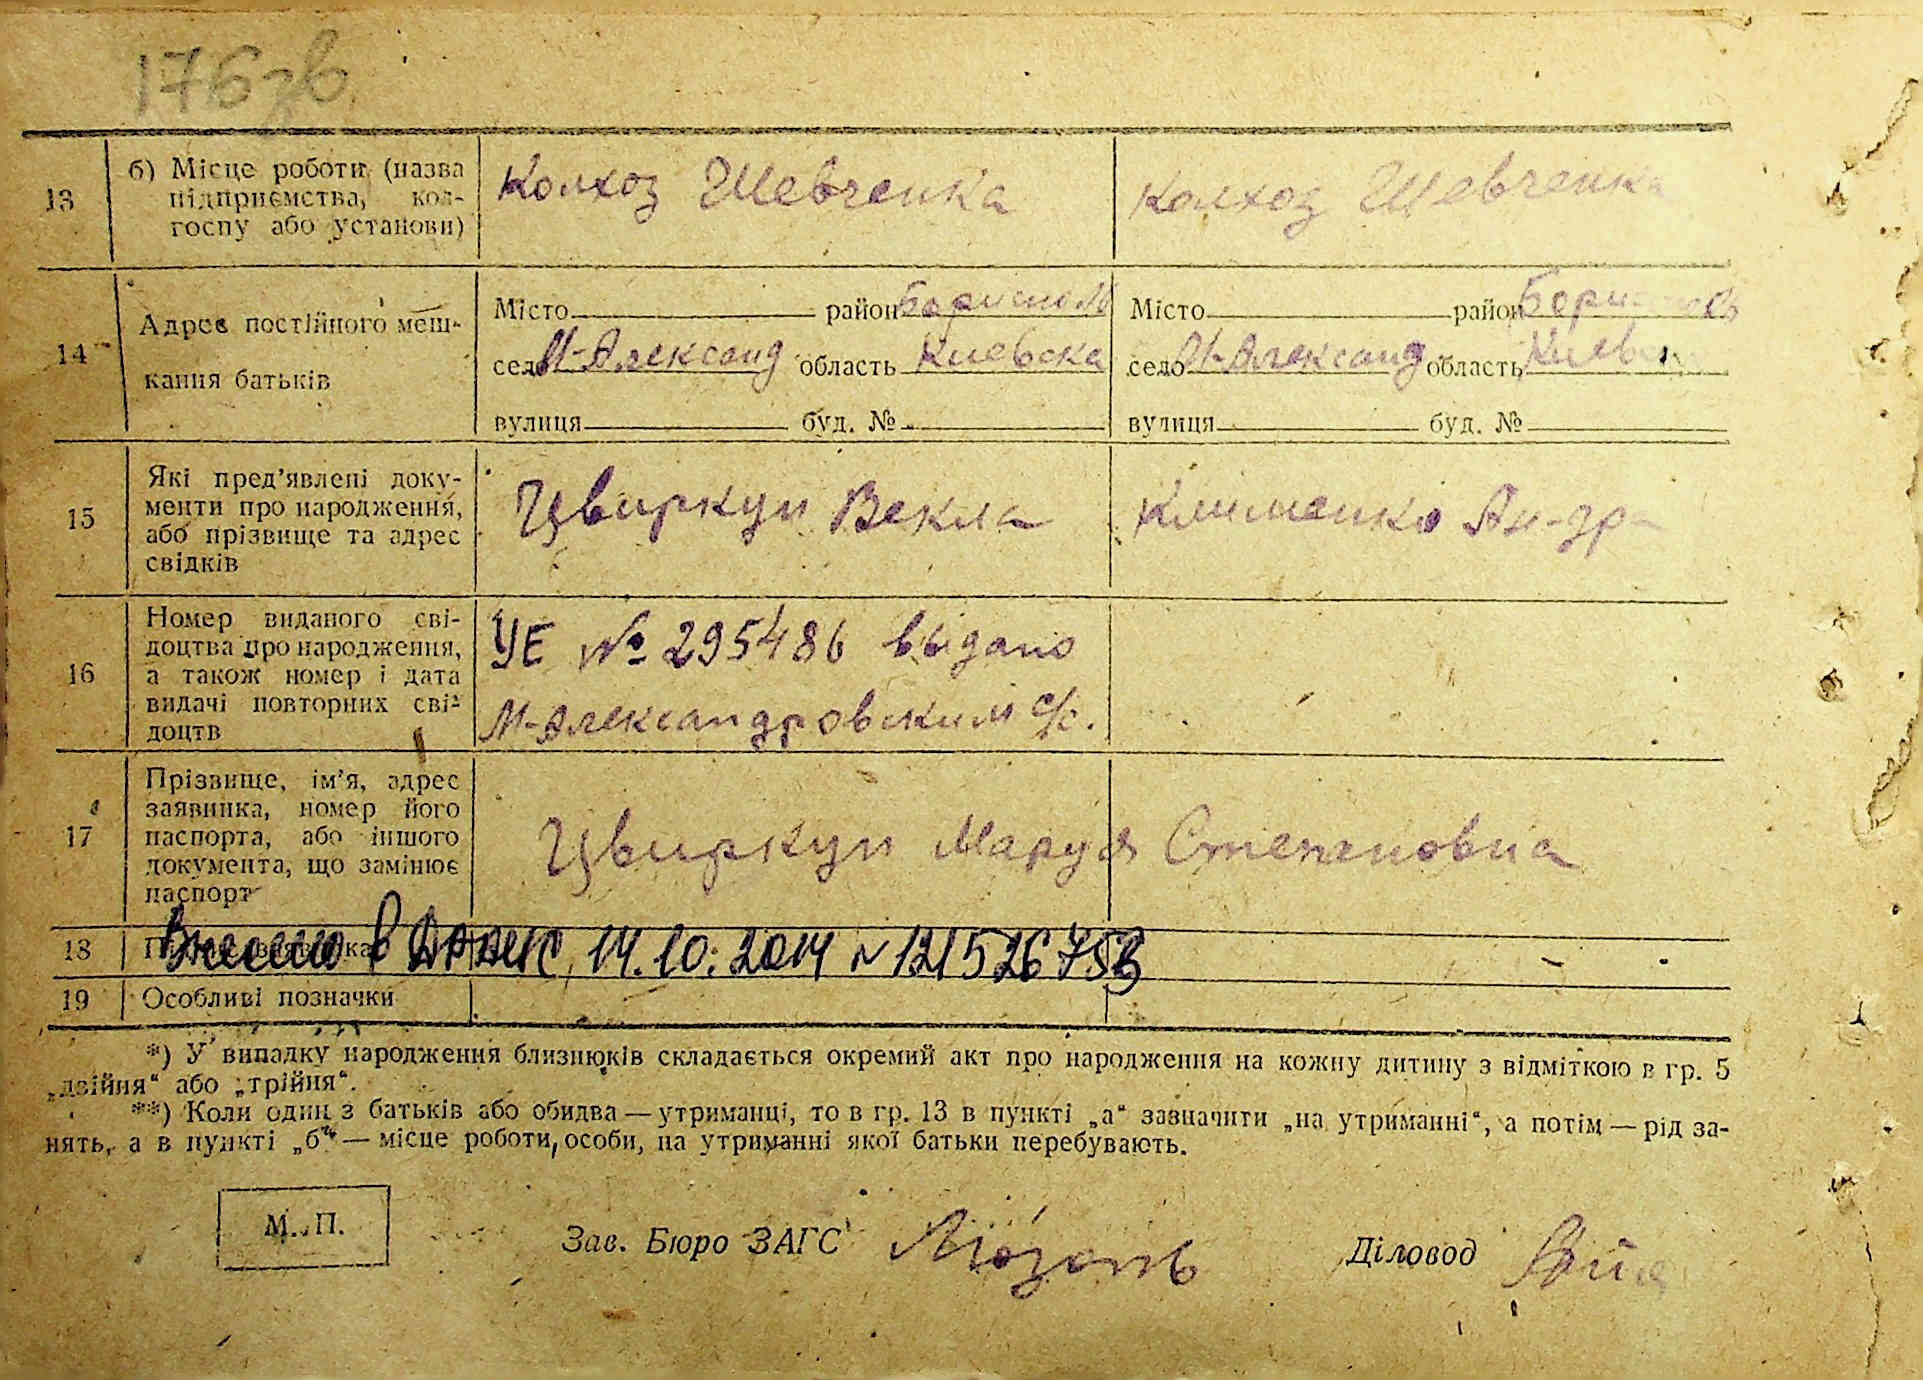 176зв
13 б) Місце роботи (назва підприємства, колгоспу або установи) Колхоз Шевченка Колхоз Шевченка
14 Адрес постійного мешкання батьків
Місто район Бориспол Місто район
село М-Александ область Киевска село М-Александ область Киев
вулиця буд. № вулиця буд. №
15 Які пред’явлені документи про народження, або прізвище та адрес свідків Цвиркун Векла Клименко Ан-др
16 Номер виданого свідоцтва про народження, а також номер і дата видачі повторних свідоцтв УЕ № 295486 выдано
М-Александровским с/с.
17 Прізвище, ім’я, адрес заявника, номер його паспорта, або іншого документа, що замінює паспорт Цвиркун Маруя Степановна
18 Внесено в ДРАЦС 14.10.2014 N 121526753
19 Особливі позначки
*) У випадку народження близнюків складається окремий акт про народження на кожну дитину з відміткою в гр. 5
„двійня“ або „трійня“.
**) Коли один з батьків або обидва — утриманці, то в гр. 13 в пункті „а“ зазначити „на утриманні“, а потім — рід за-
нять, а в пункті „б“ — місце роботи, особи, на утриманні якої батьки перебувають.
М. П. Зав. Бюро ЗАГС Діловод